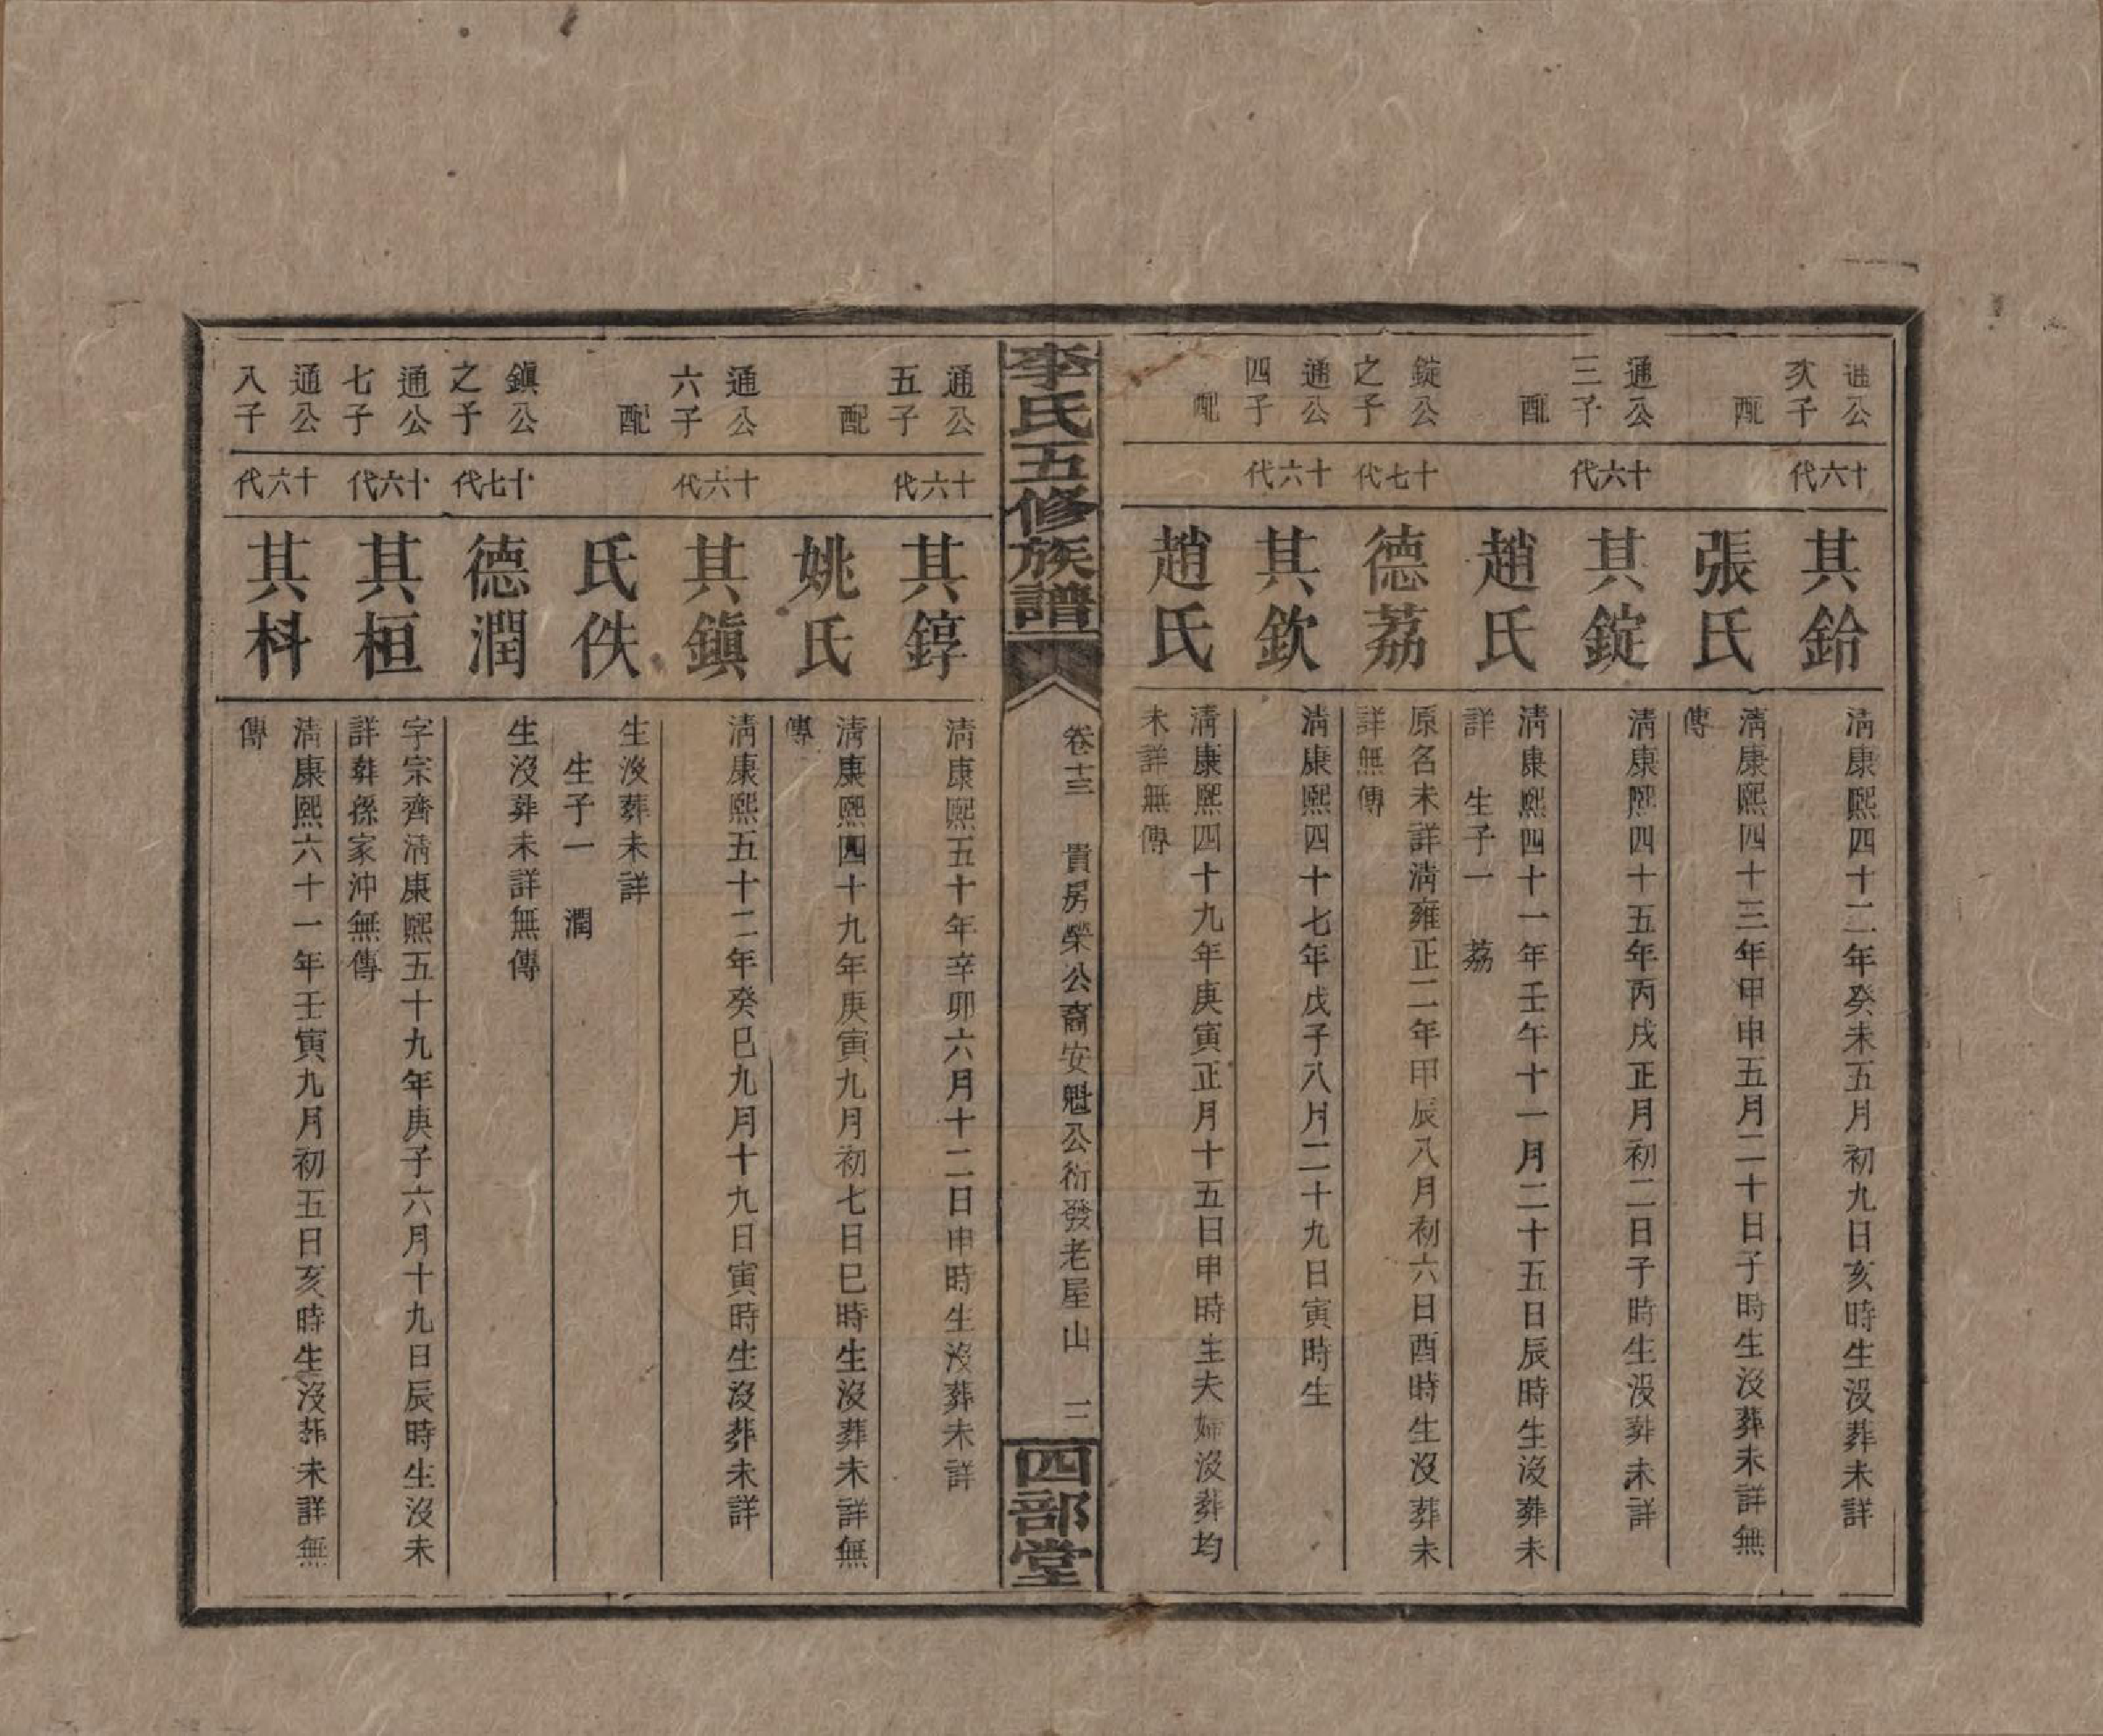 通公
次子
十六代
其鉿
淸康熙四十二年癸未五月初九日亥時生沒葬未詳
配
張氏
淸康熙四十三年甲申五月二十日子時生沒葬未詳無
傳
通公
三子
十六代
其錠
淸康熙四十五年丙戌正月初二日子時生沒葬未詳
配
趙氏
淸康熙四十一年壬午十一月二十五日辰時生沒葬未
詳 生子一 荔
錠公
之子
十七代
德荔
原名未詳淸雍正二年甲辰八月初六日酉時生沒葬未
詳無傳
通公
四子
十六代
其欽
淸康熙四十七年戊子八月二十九日寅時生
配
趙氏
淸康熙四十九年庚寅正月十五日申時生夫婦沒葬均
未詳無傳
李氏五修族譜
卷十三 貴房榮公裔安魁公衍發老屋山 三
四部堂
通公
五子
十六代
其錞
淸康熙五十年辛卯六月十二日申時生沒葬未詳
配
姚氏
淸康熙四十九年庚寅九月初七日巳時生沒葬未詳無
傳
通公
六子
十六代
其鎭
淸康熙五十二年癸巳九月十九日寅時生沒葬未詳
配
氏佚
生沒葬未詳
生子一 潤
鎭公
之子
十七代
德潤
生沒葬未詳無傳
通公
七子
十六代
其桓
字宗齊淸康熙五十九年庚子六月十九日辰時生沒未
詳葬孫家沖無傳
通公
八子
十六代
其枓
淸康熙六十一年壬寅九月初五日亥時生沒葬未詳無
傳